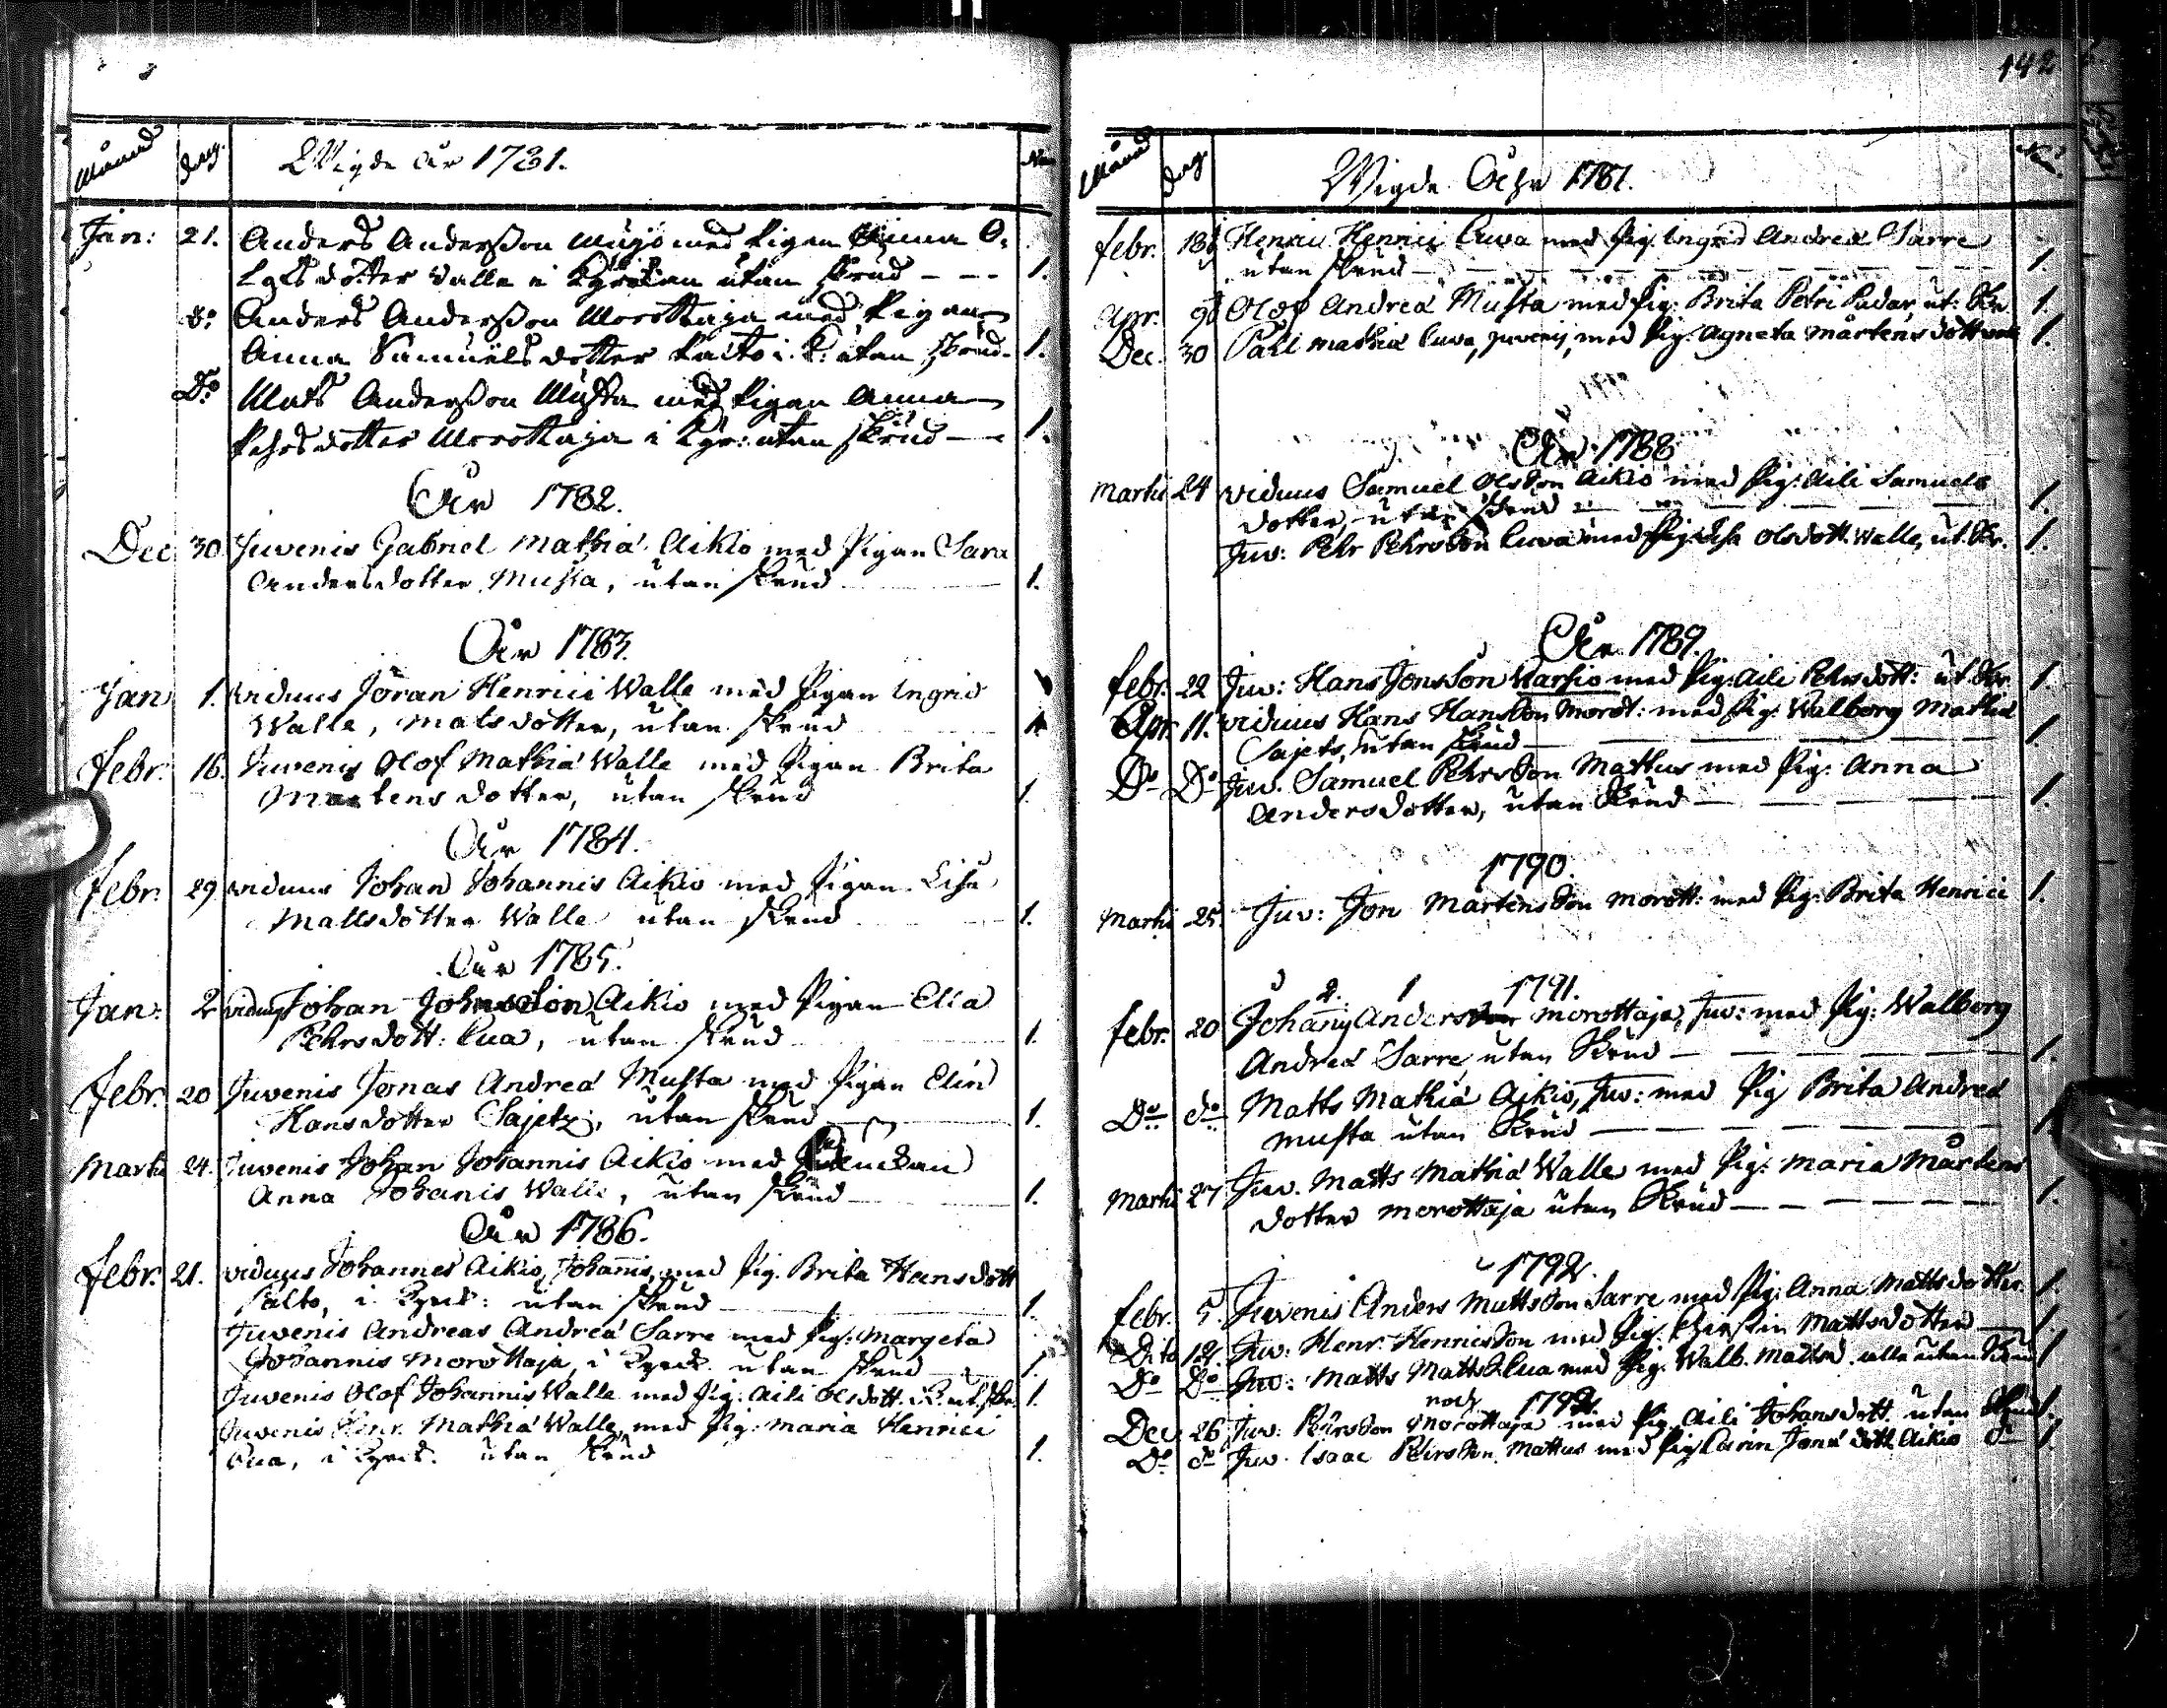 Månad Dag. Wigde År 1781. No
Jan: 21. Anders Andersson Mujo med Pigan Anna O-
lofsdotter Valle i Kyrkian utan skrud - - - 1.
d:o Anders Andersson Morottaja med Pigan
Anna Samuelsdotter Palto i K: utan skrud. 1.
D:o Mats Andersson Musta med Pigan Anna
Pehrsdotter Morottaja i Kyr: utan skrud - 1.
År 1782.
Dec 30. Juvenis Gabriel Mathiæ Aikio med Pigan Sara
Andersdotter Musta, utan skrud 1.
År 1783.
Jan 1. viduus Jöran Henrici Walle med Pigan Ingrid
Walle, Matsdotter, utan skrud 1
Febr. 16. Juvenis Olof Mathiæ Walle med Pigan Brita
Mårtensdotter, utan skrud 1.
År 1784.
Febr. 29 viduus Johan Johannis Aikio med Pigan Lisa
Mattsdotter Walle utan skrud 1.
År 1785.
Jan. 2 viduus Johan Johnsson Aikio med Pigan Ella
Pehrsdott: Cua, utan skrud 1.
Febr. 20 Juvenis Jonas Andreæ Musta med Pigan Elin
Hansdotter Sajetz, utan skrud 1.
Martii 24. Juvenis Johan Johannis Aikio med Änckan
Anna Johanis Walle, utan skrud 1.
År 1786.
Febr. 21. viduus Johannes Aikio, Johannis, med Pig. Brita Hansdott
Palto, i Kyrck: utan skrud 1.
Juvenis Andreas Andreæ Sarre med Pig: Margeta
Johannis Morottaja, i Kyrck. utan skrud 1.
Juvenis Olof Johannis Walle med Pig: Aili Olsdott. i K. ut. skr. 1.
Juvenis Henr. Mathiæ Walle med Pig: Maria Henrici
Cua, i Kyrck. utan skrud 1.
142
Månad Dag Wigde Åhr 1787. No
Febr. 18 Henric Henrici Cuva med Pig. Ingrid Andreæ Sarre
utan skrud 1.
Apr. 9 Olof Andreæ Musta med Pig: Brita Petri Padar, ut: Skr. 1.
Dec. 30 Pahl Mathiæ Cuva, juvenis, med Pig. Agneta Mårtensdott 1.
År 1788
Martii 24 viduus Samuel Olsson Aikio med Pig: Aili Samuels
dotter, utan skrud 1.
Juv: Pehr Pehrsson Cuva med Pig. Lisa Olsdott. Walle, ut. Skr. 1.
År 1789.
Febr. 22 Juv: Hans Jonsson Karhio med Pig: Aili Pehrsdott: ut skr. 1.
Apr. 11. viduus Hans Hansson Morot: med Pig: Walborg Mathiæ
Sajets, utan skrud 1.
D:o D:o Juv. Samuel Pehrsson Mattus med Pig: Anna
Andersdotter, utan Skrud 1.
1790.
Martii 25. Juv: Jon Mårtensson Morott: med Pig: Brita Henrici 1.
2. 1 1791.
Febr. 20 Johannis Anders Morottaja, Juv: med Pig: Walborg
Andreæ Sarre, utan Skrud 1.
D:o d:o Matts Mathiæ Aikio, Juv: med Pig Brita Andreæ
Musta utan Skrud 1.
Martii 27 Juv. Matts Mathiæ Walle med Pig: Maria Mårtens
dotter Morottaja utan Skrud 1.
1792.
Febr. 5. Juvenis Anders Mattsson Sarre med Pig: Anna Mattsdotter. 1.
Dito 12. Juv: Henr. Henricsson med Pig. Kjerstin Mattsdotter 1.
D:o D:o Juv: Matts Matts Cua med Pig. Walb. Mattsd. Valle utan Skrud 1
noch 1792.
Dec. 26 Juv: Pehrsson Morottaja med Pig. Aili Johansdott. utan Skrud 1.
D:o d:o Juv. Isaac Pehrsson Mattus med Pig. Carin Jonædott. Aikio d:o 1.